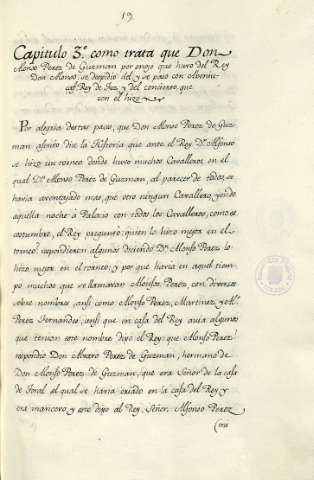 19.
Capitulo 3.º como trata que Don
Alonso Perez de Guzman por enojo que huvo del Rey
Don Alonso, se despidio del y se paso con Abeniu-
çaf Rey de Fez, y del concierto que
con el hizo
Por alegria destas paces, que Don Alonso Perez de Guz-
man, asento dize la Historia que ante el Rey D.n Alfonso
se hizo un torneo donde huvo muchos Cavalleros, en el
qual D.n Alfonso Perez de Guzman, al parecer de todos, se
havia aventajado mas, que otro ningun Cavallero, yendo
aquella noche a Palacio con todos los Cavalleros, como es
costumbre, el Rey pregunto: quien lo hizo mejor en el
torneo? respondieron algunos diciendo D.n Alonso Perez lo
hizo mejor en el torneo; y por que havia en aquel tiem-
po muchos que se llamavan Alonsos Perez, con diversos
sobre nombres, ansi como Alonso Perez, Martinez, y Al.o
Perez Fernandez, ansi que en casa del Rey avia algunos
que tenian este nombre dijo el Rey: que Alonso Perez?
respondio Don Alvaro Perez de Guzman, hermano de
Don Alonso Perez de Guzman, que era Señor de la casa
de Toral al qual se havia criado en la casa del Rey, y
era mancevo, y este dijo al Rey, Señor, Alfonso Perez